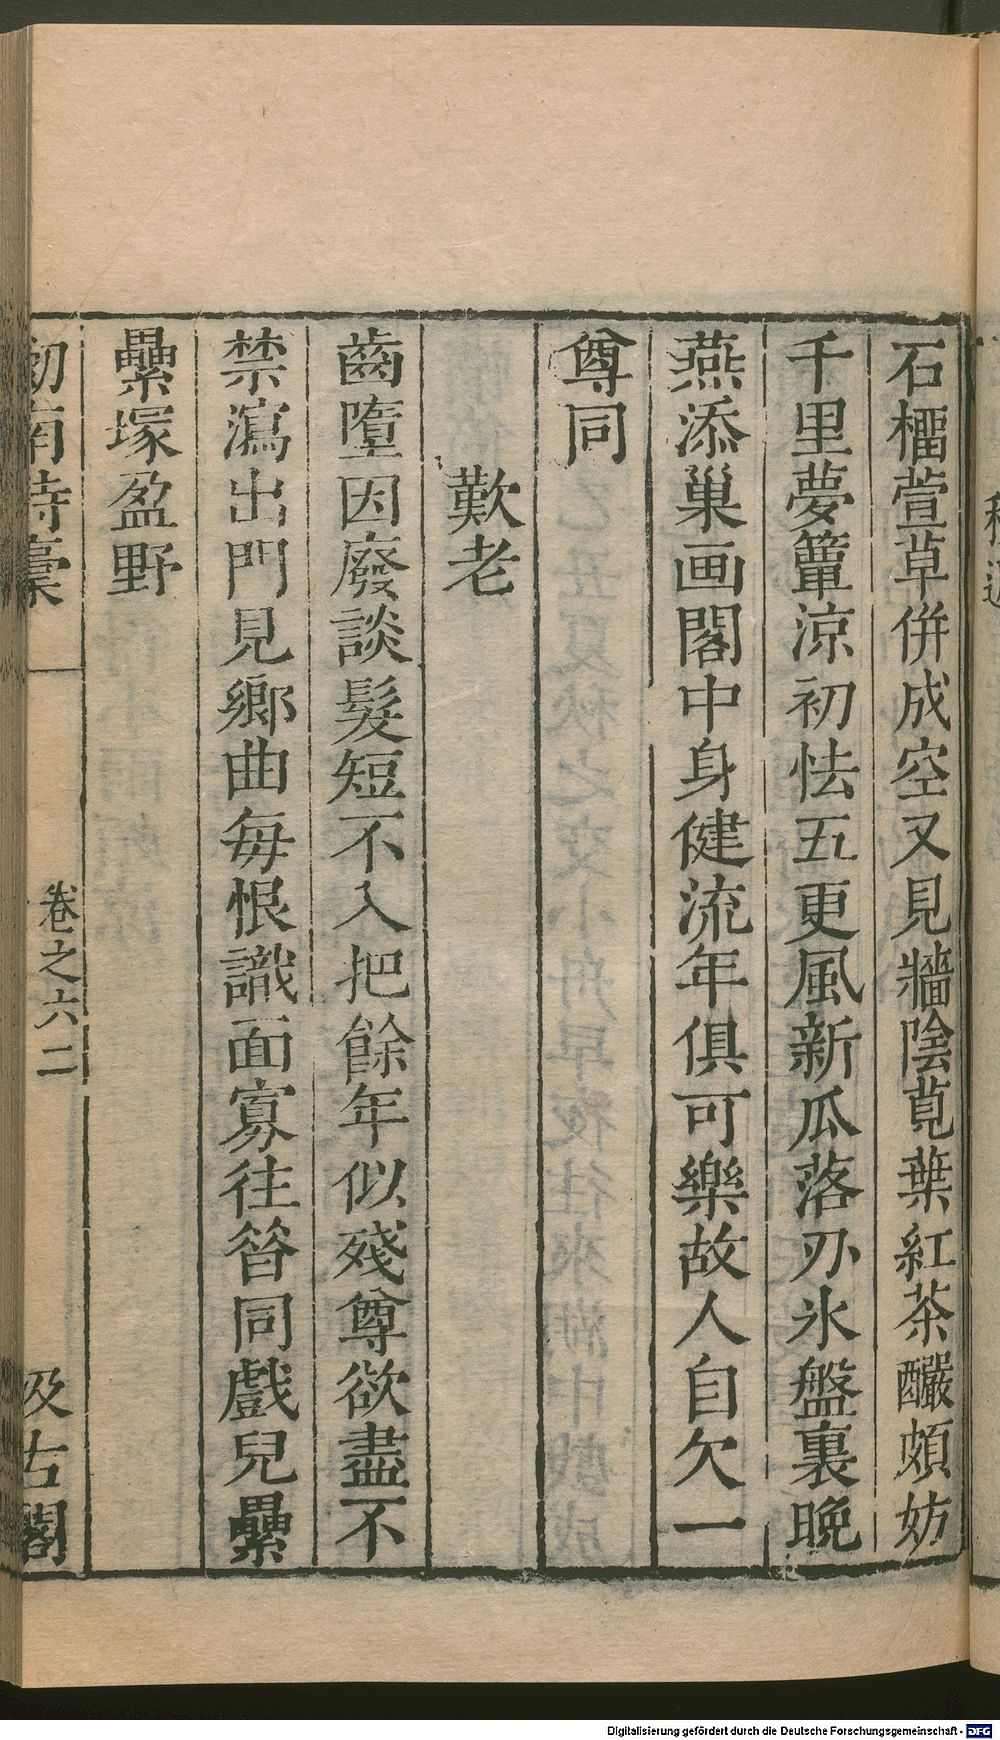 石榴萱草併成空又見牆陰莧葉紅茶釅頗妨
千里夢簟涼初怯五更風新瓜落刅氷盤裏晩
燕添巢画閣中身健流年俱可樂故人自欠一
尊同
歎老
齒墮因廢談髮短不入把餘年似殘尊欲盡不
禁瀉出門見鄉曲每恨識面寡往昝同戲兒纍
纍塚盈野
劒南詩稾
卷之六二
汲古閣
Digitalisierung gefördert durch die Deutsche Forschungsgemeinschaft - DFG